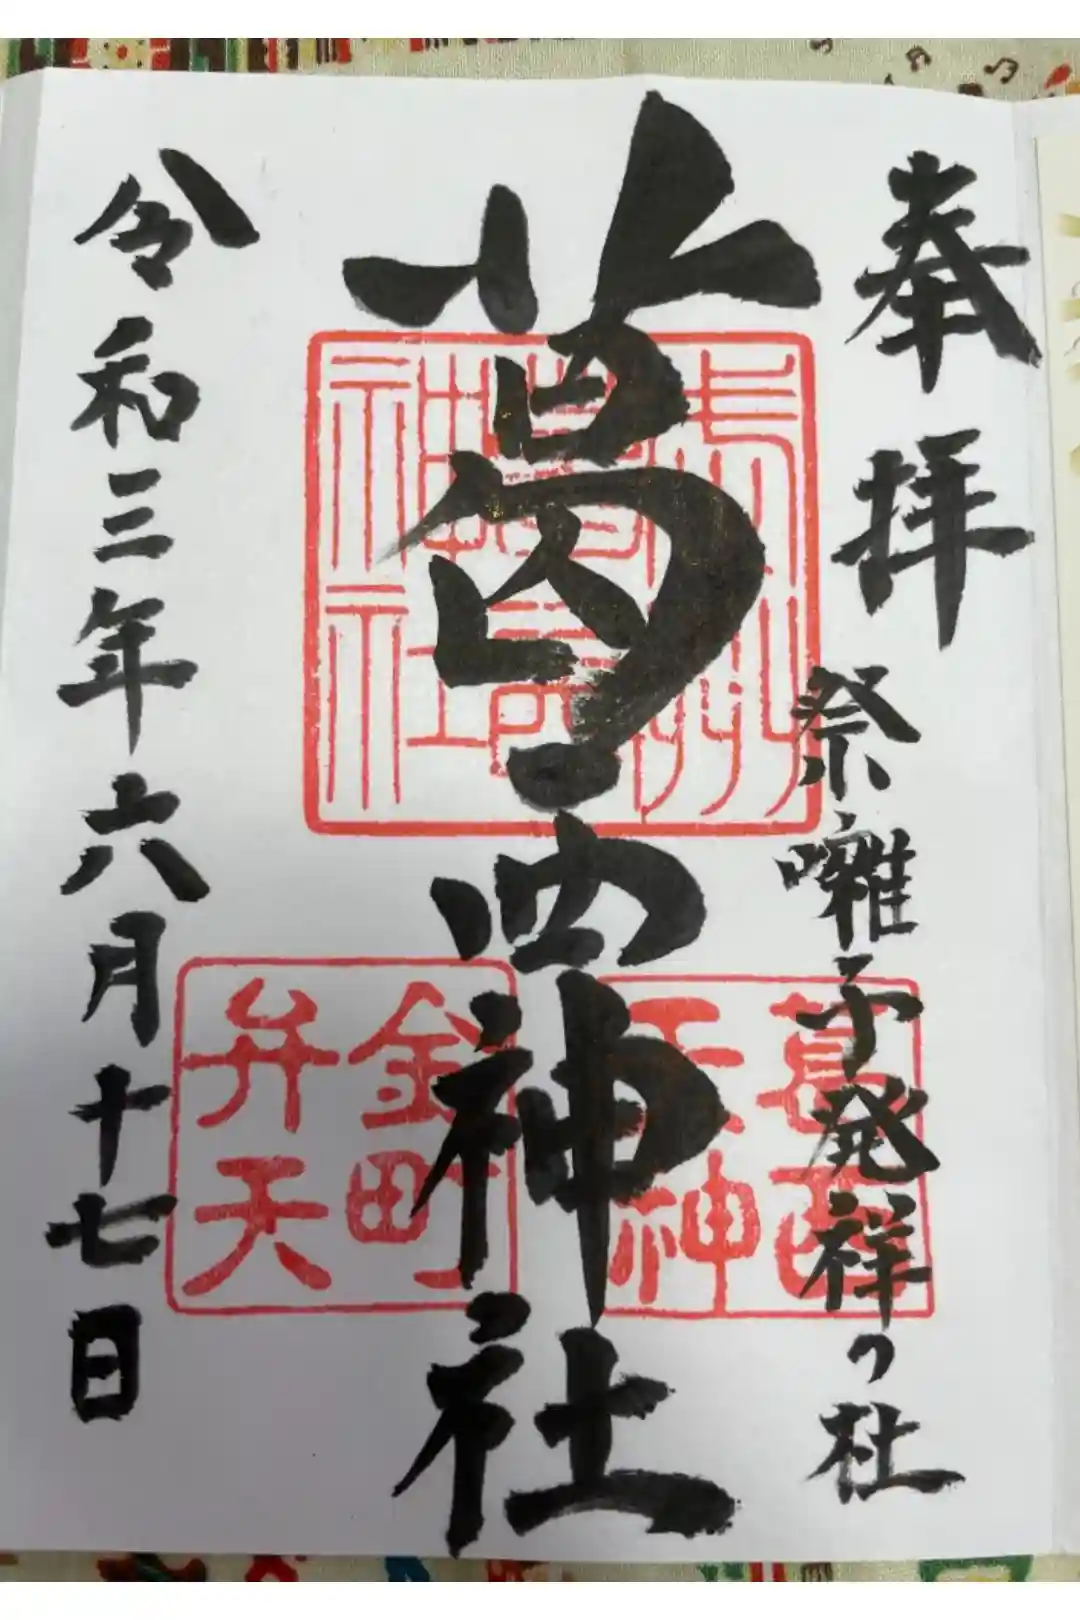 奉拝
祭囃子発祥の杜
葛西神社
令和三年六月十七日
葛西
天神
金町
弁天